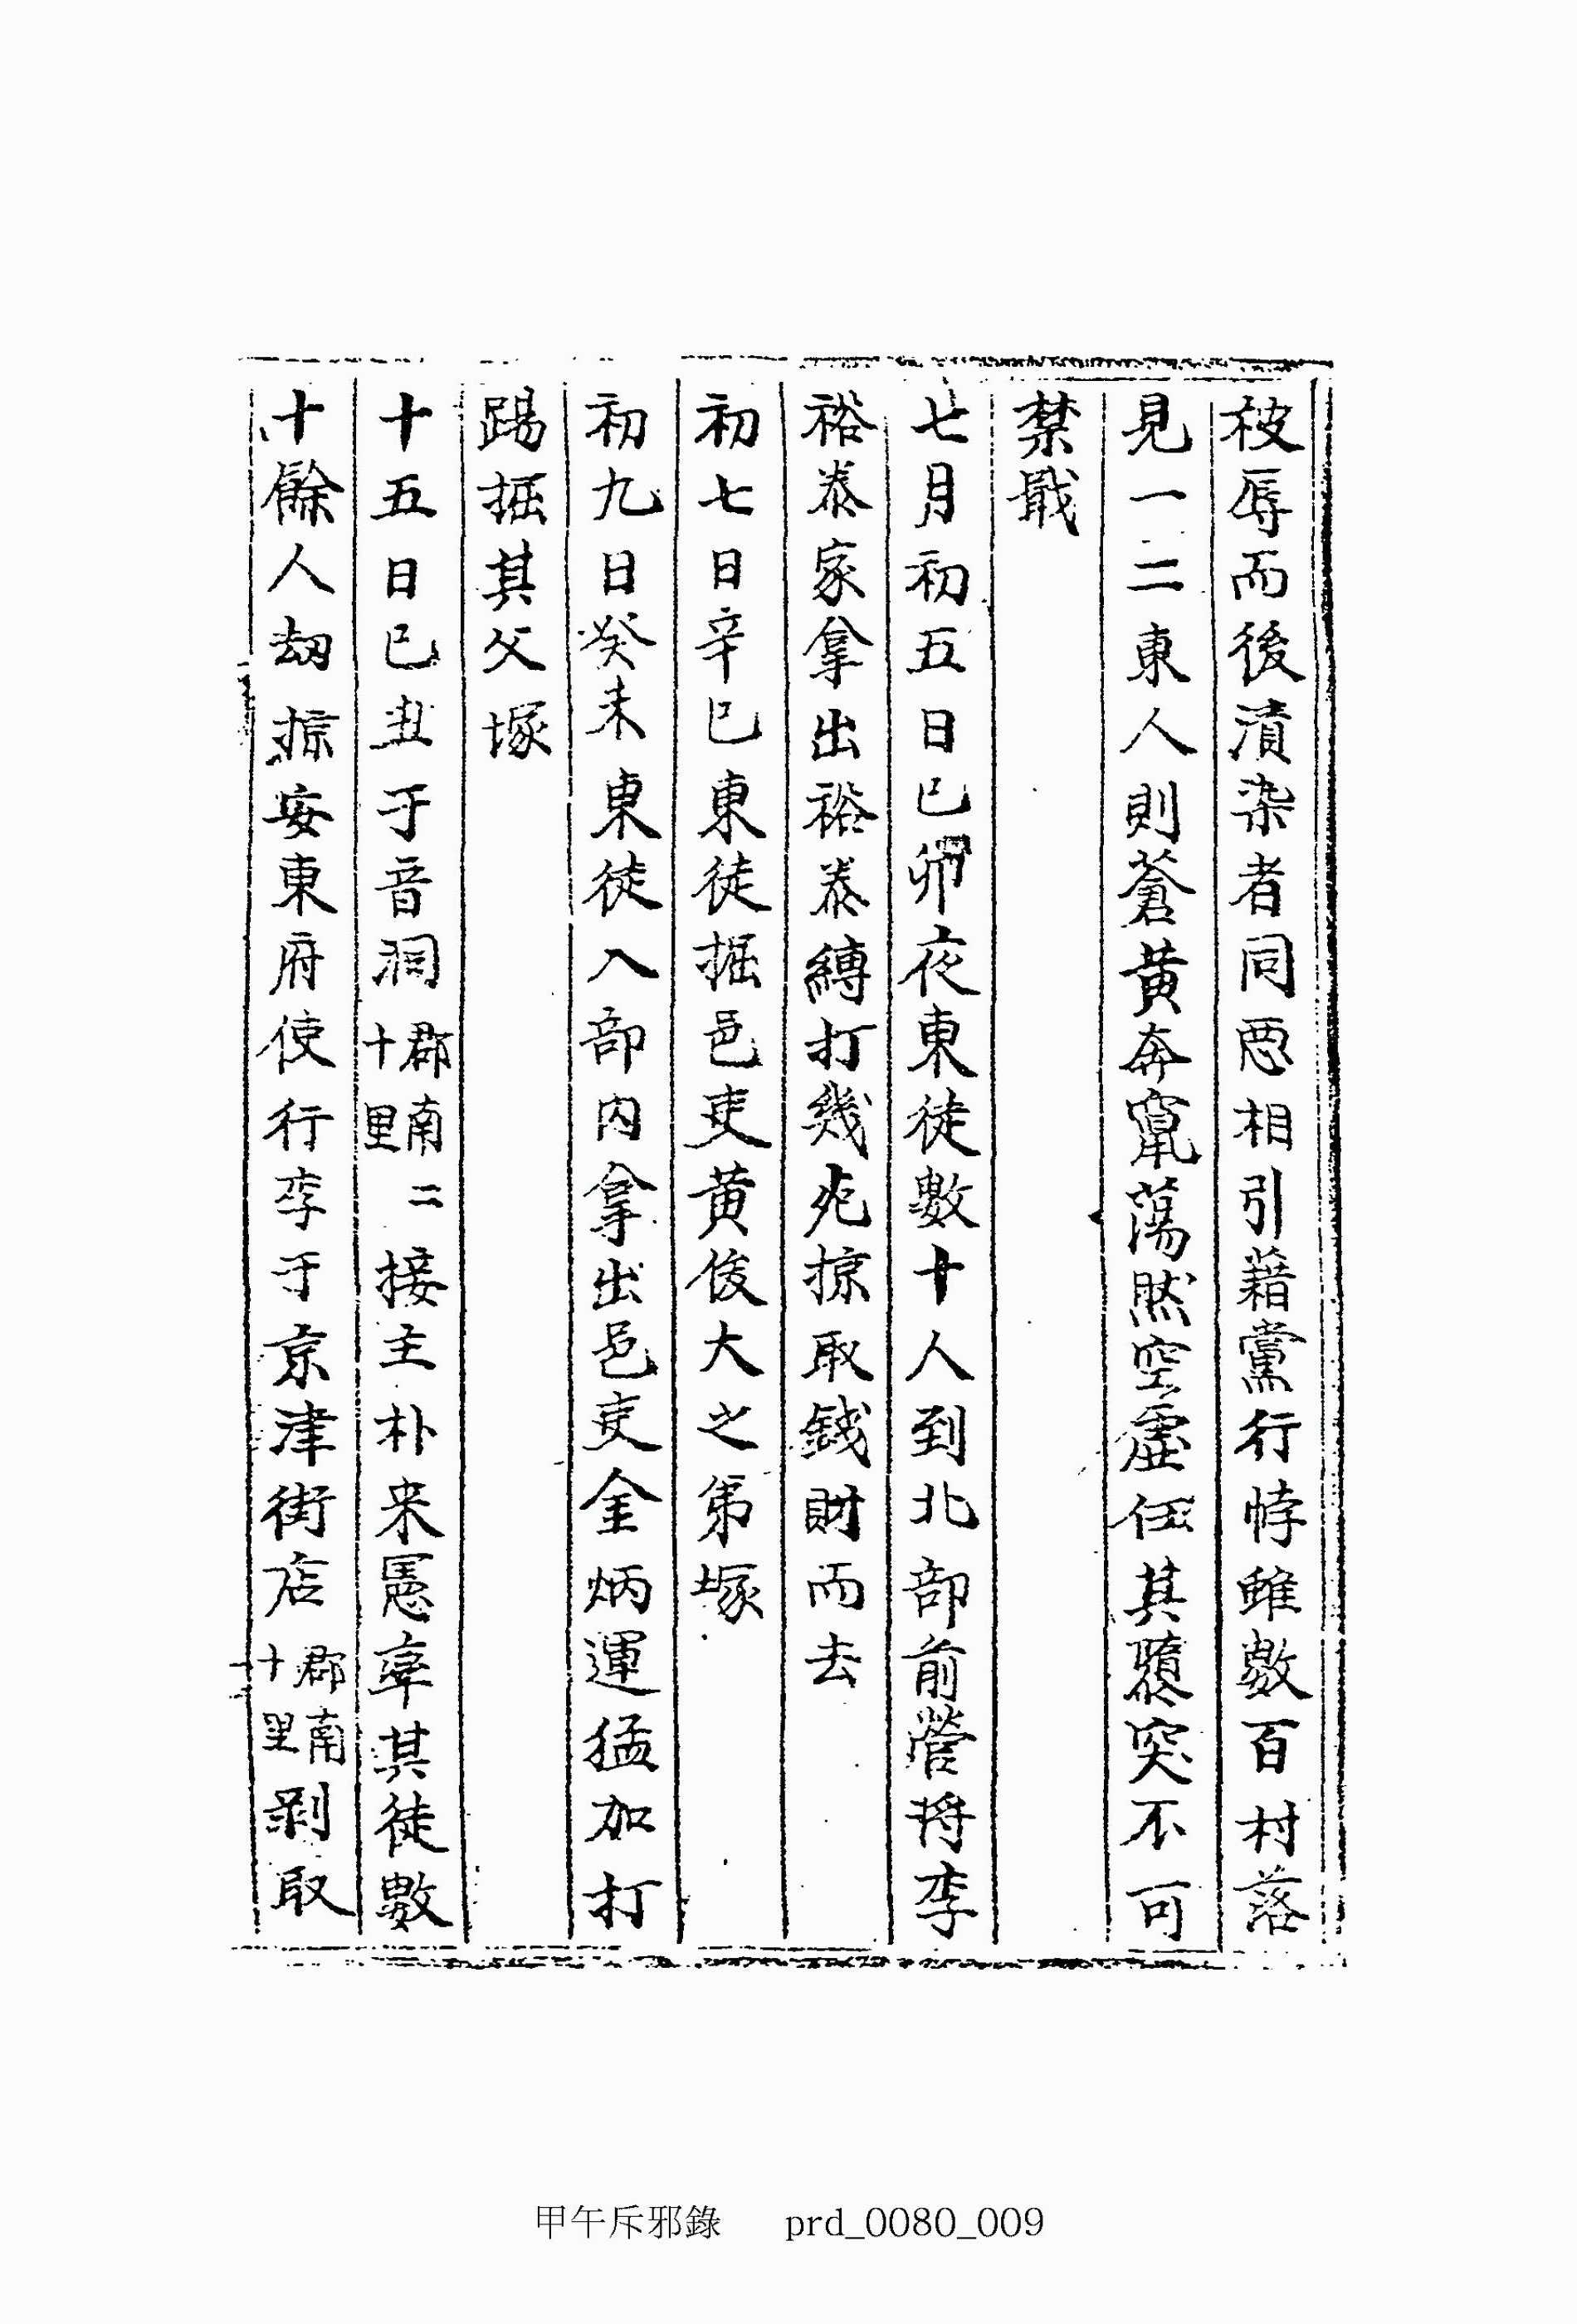 被辱而後漬染者同惡相引藉黨行悖雖數百村落
見一二東人則蒼黃奔竄蕩然空虛任其隳突不可
禁戢
七月初五日己卯夜東徒數十人到北部前營將李
裕泰家拿出裕泰縛打幾死掠取錢財而去
初七日辛巳東徒掘邑吏黃俊大之弟塚
初九日癸未東徒入部內拿出邑吏金炳運猛加打
踢掘其父塚
十五日己丑于音洞郡南二十里接主朴來愚率其徒數
十餘人劫掠安東府使行李于京津街店郡南十里剝取
甲午斥邪錄 prd_0080_009